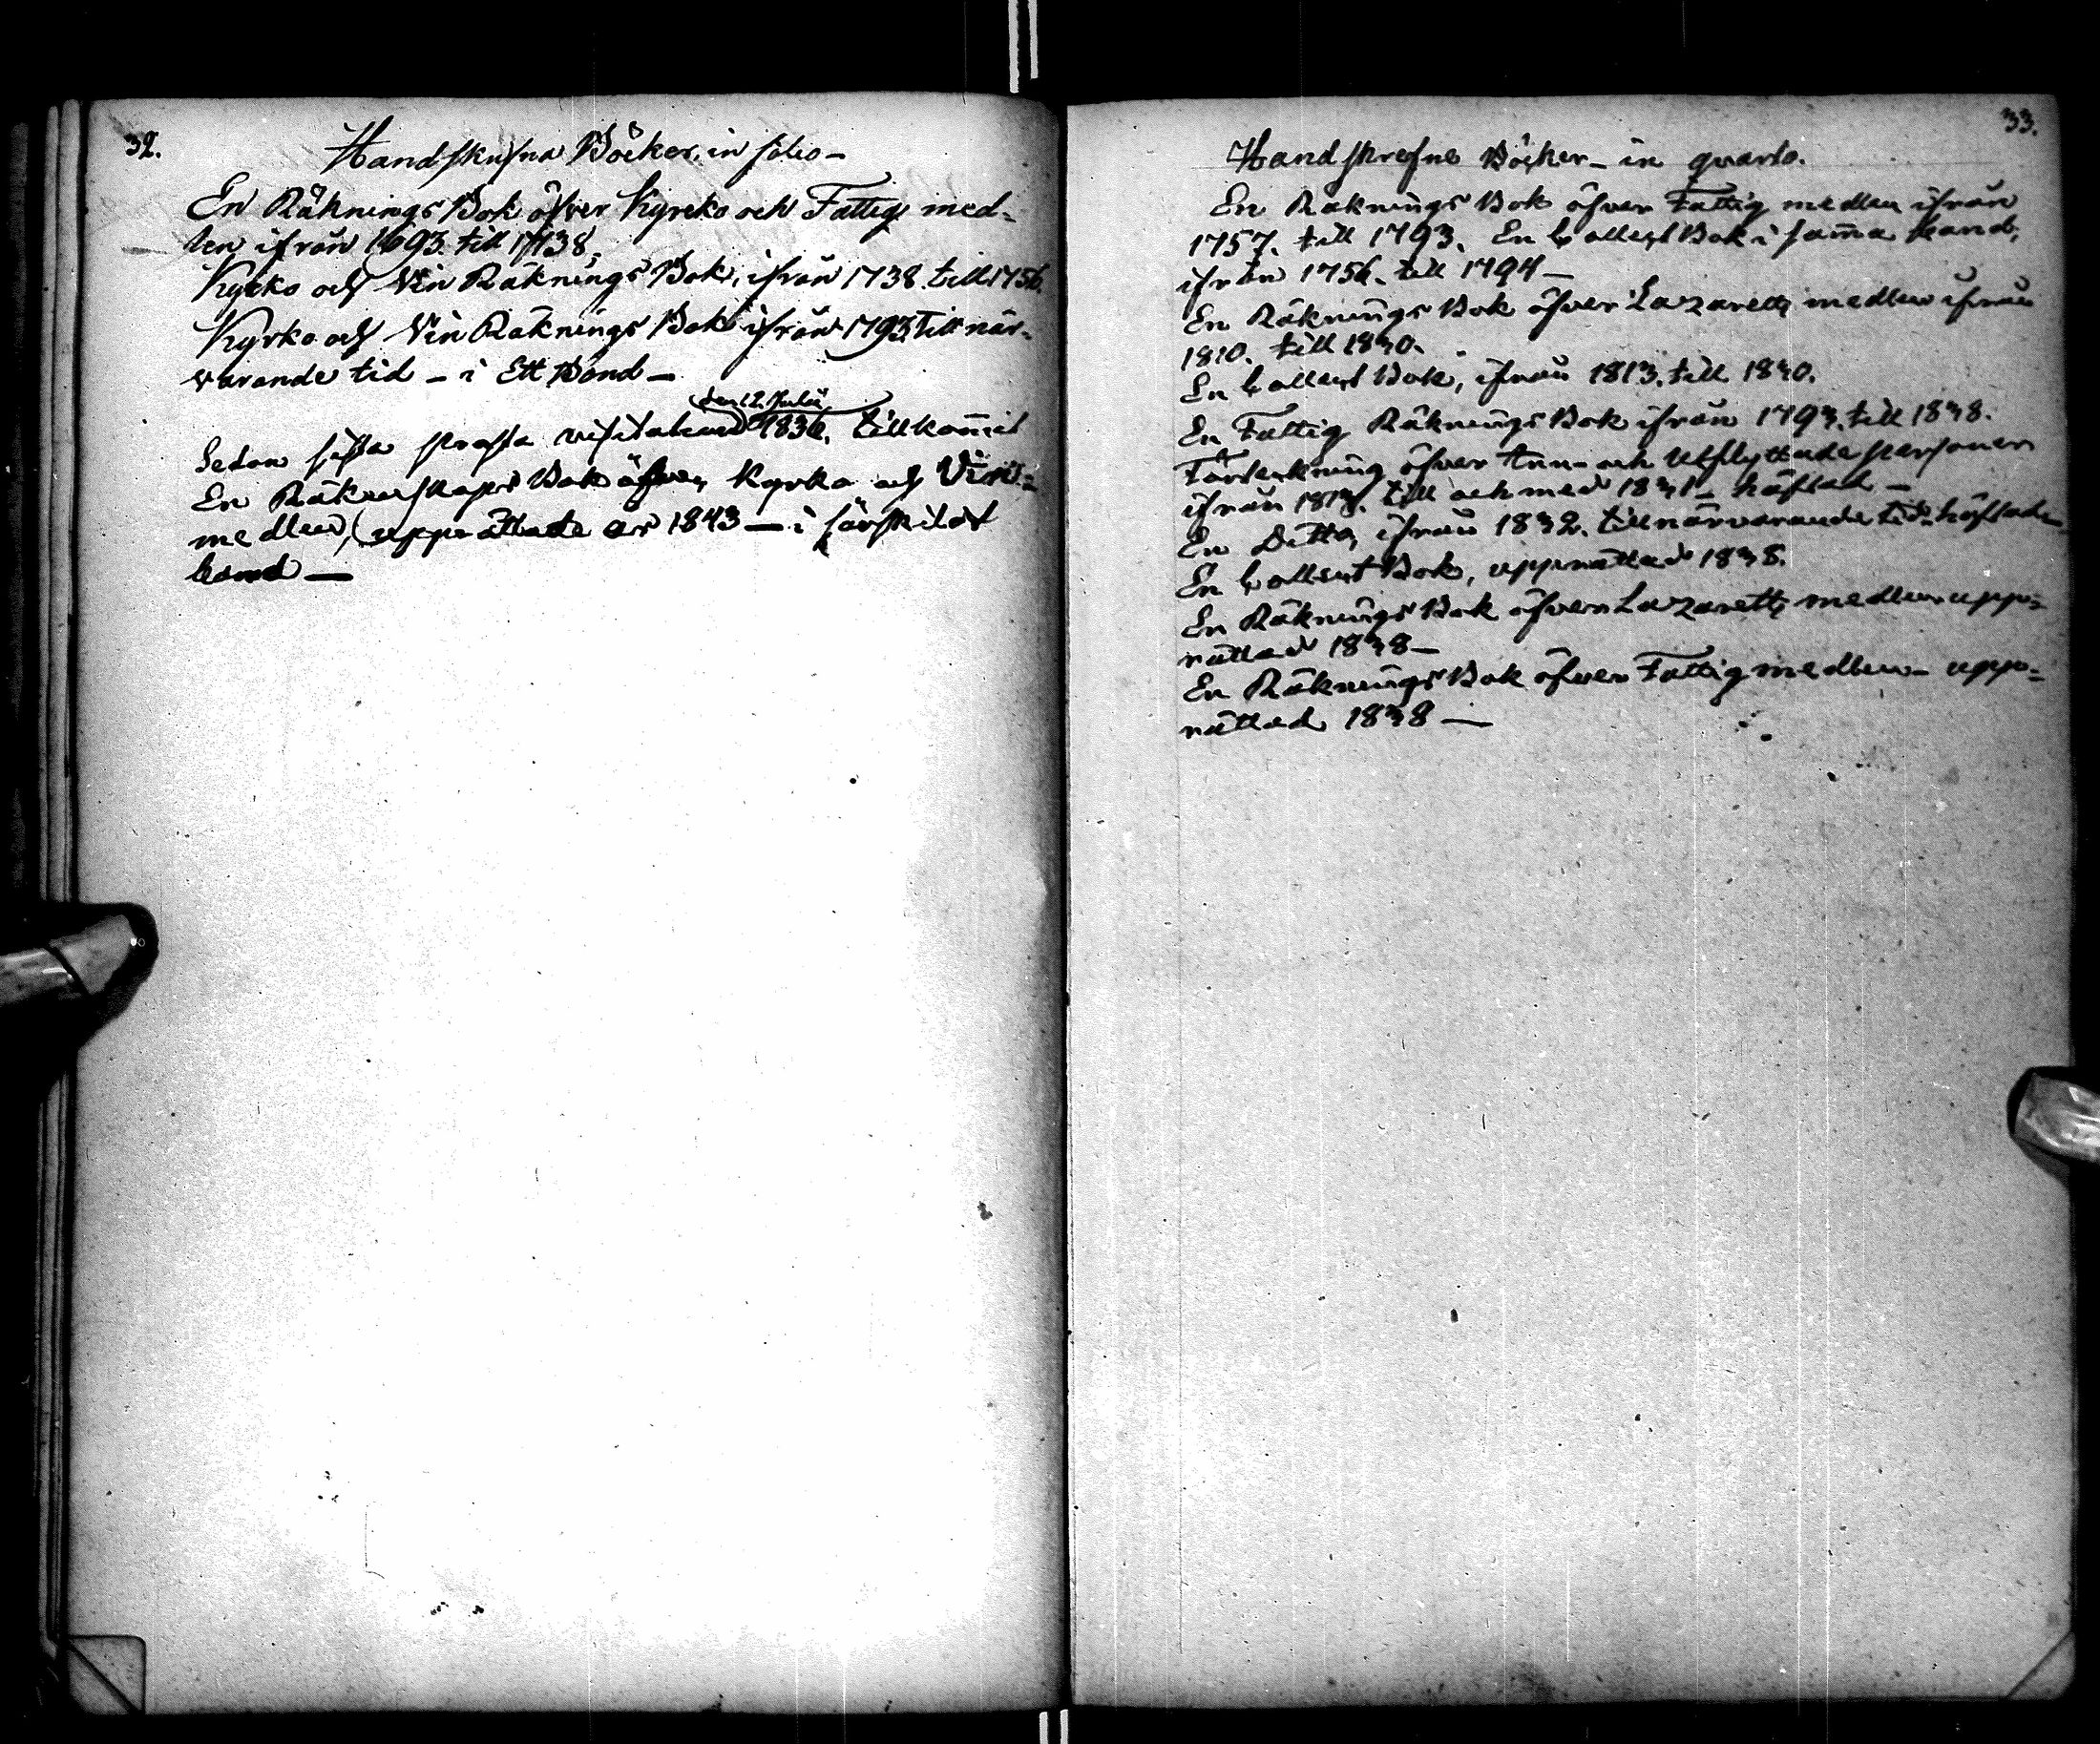 32.
Handskrefna Böcker, in folio -
En Räknings Bok öfver Kyrko och Fattig med-
len ifrån 1693 till 1738,
Kyrko och Vin Räknings Bok, ifrån 1738 till 1756.
Kyrko och Vin Räknings Bok ifrån 1793 till när-
varande tid - i Ett Band -
den 12. Julii
Sedan sista prosta visitation 1836. tillkommit
En Räkenskaps Bok öfver Kyrko och
medlen, upprättade år 1843 - i särskildt
band -
33.
Handskrefne Böcker - in qvarto.
En Räknings Bok öfver Fattig medlen ifrån
1757. till 1793. En Collect Bok i samma band,
ifrån 1756. till 1794 -
En Räknings Bok öfver Lazaretts medlen ifrån
1810. till 1830.
En Collect Bok, ifrån 1813. till 1830.
En Fattig Räknings Bok ifrån 1793. till 1838.
Förteckning öfver Inn- och Utflyttade personer
ifrån till och med 1831 - häftad -
En Ditto, ifrån 1832. till närvarande tid - häftade -
En Collect Bok, upprättad 1838.
En Räknings Bok öfver Lazaretts medlen upp=
rättad 1838 -
En Räknings Bok öfver Fattig medlen - upp=
rättad 1838 -